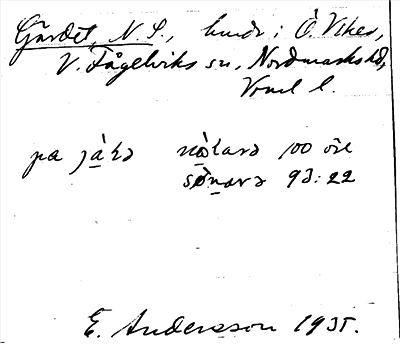 Gärdet, N. S., hmdr i Ö. Viker,
V. Fågelviks sn, Nordmarks hd,
Vrml l.
pa jàka nòlara 100 öre
sønara 93:22
E. Andersson 1935.